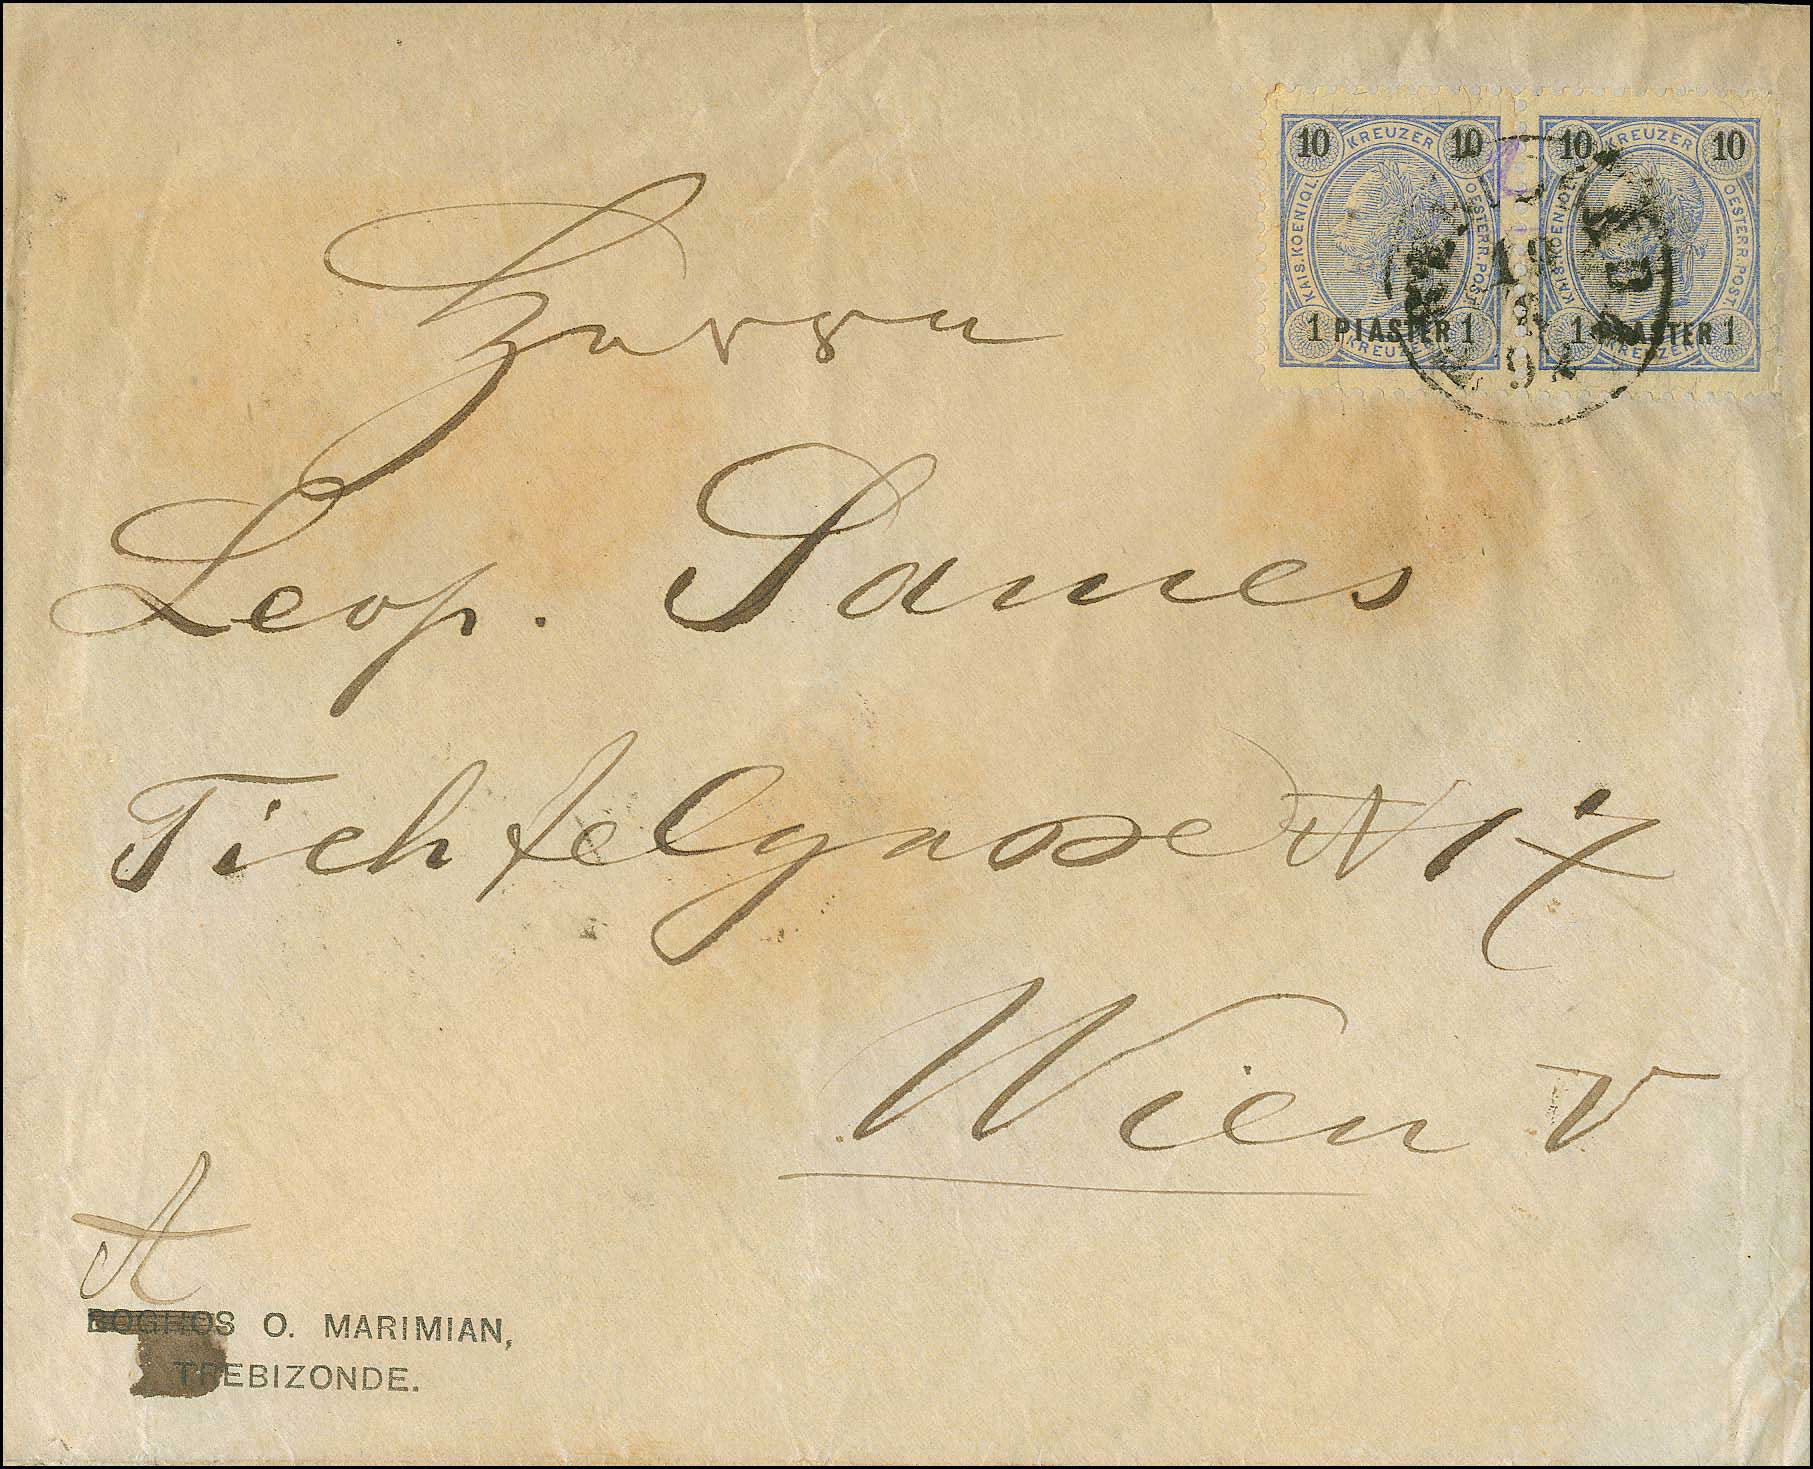 10 KREUZER 10 10 KREUZER 10
KAIS. KOENIGL. OESTERR. POST. KAIS. KOENIGL. OESTERR. POST.
1 PIASTER 1 1 PIASTER 1
KREUZER KREUZER
Herrn
Leop. Sames
Tichtelgasse N 17
Wien V
A
BOGHOS O. MARIMIAN,
TREBIZONDE.